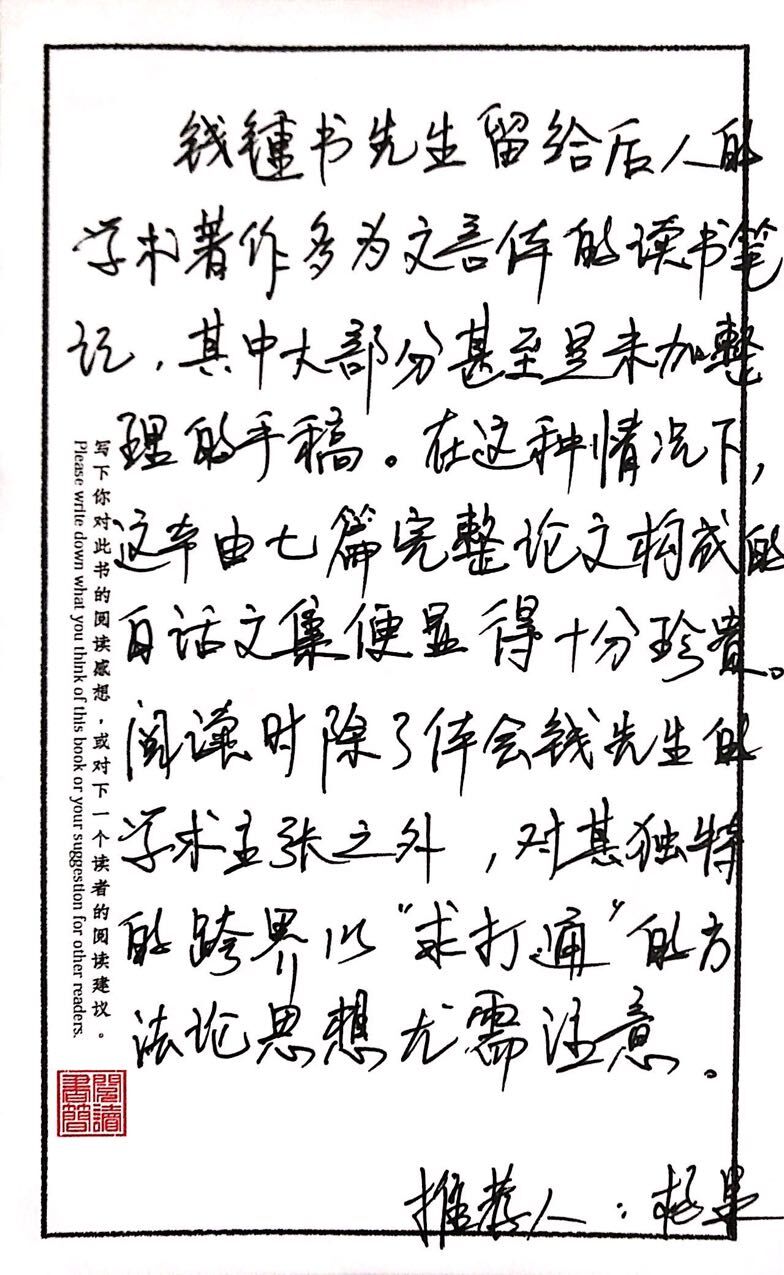 钱锺书先生留给后人的
学术著作多为文言体的读书笔
记，其中大部分甚至是未加整
理的手稿。在这种情况下，
这本由七篇完整论文构成的
白话文集便显得十分珍贵。
阅读时除了体会钱先生的
学术主张之外，对其独特
的跨界以“求打通”的方
法论思想尤需注意。
推荐人：杨果
写下你对此书的阅读感想，或对下一个读者的阅读建议。
Please write down what you think of this book or your suggestion for other readers.
閱讀
書簡